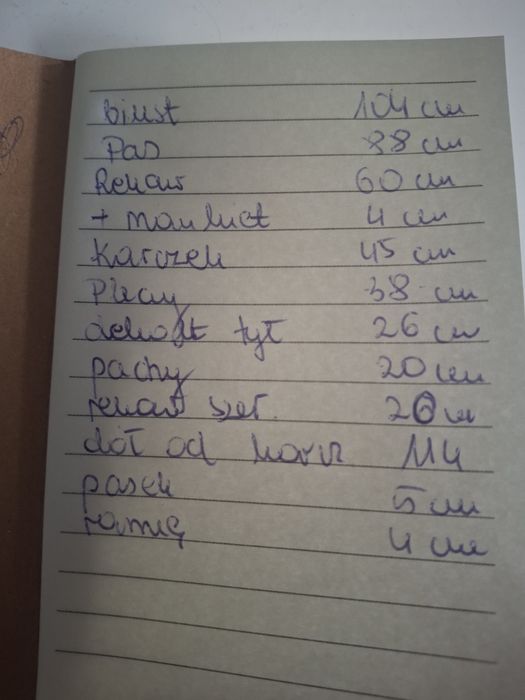 biust 104 cm
Pas 88 cm
Rękaw 60 cm
+ mankiet 4 cm
Karczek 45 cm
Plecy 38 cm
dekolt tył 26 cm
pachy 20 cm
rękaw szer. 20 cm
dół od karcz 114
pasek 5 cm
ramię 4 cm